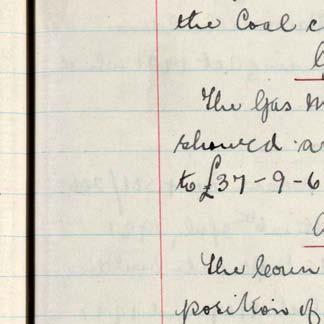 the Coal c
The Gas M
showed a
to £37-9-6
The Coun
position of